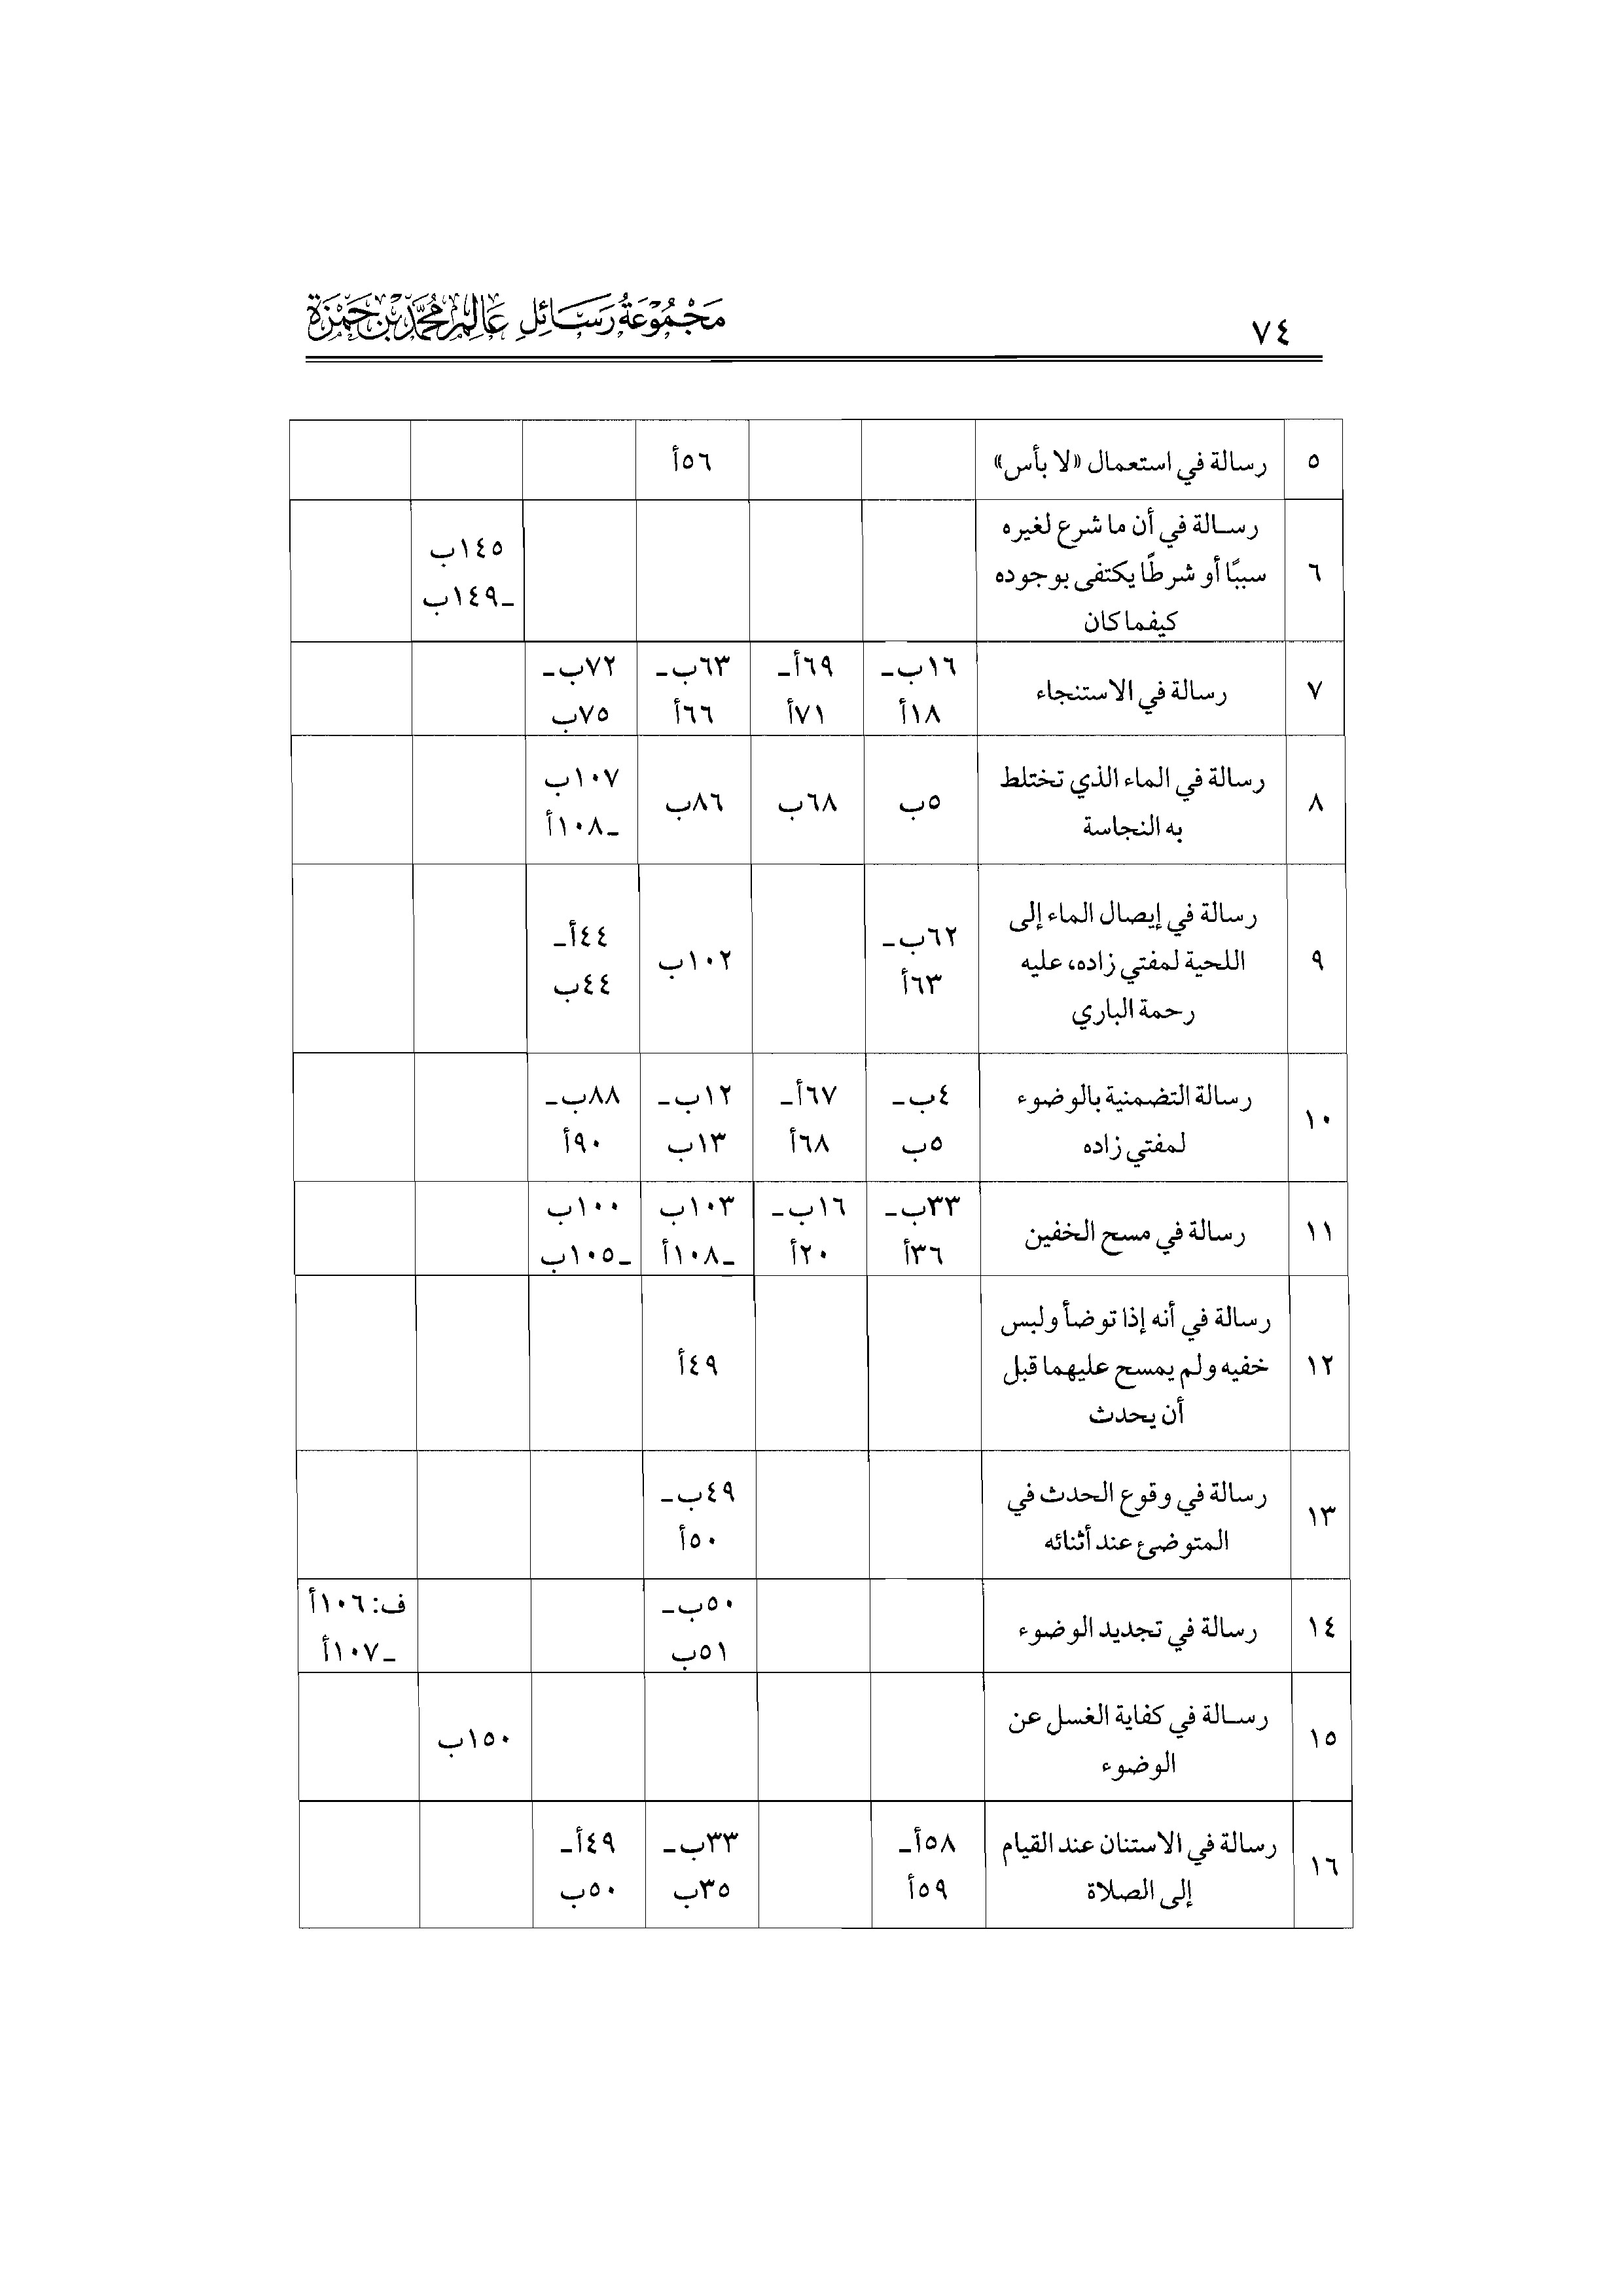 ٧٤
مَجْمُوْعَةُ رَسَائِلِ عَالِم مُحَمَّد بْن حَمْزَة
٥
رسالة في استعمال «لا بأس»
٥٦أ
٦
رسالة في أن ما شرع لغيره
سببًا أو شرطًا يكتفى بوجوده
كيفما كان
١٤٥ب
ـ١٤٩ب
٧
رسالة في الاستنجاء
١٦ب ـ
١٨أ
٦٩أ ـ
٧١أ
٦٣ب ـ
٦٦أ
٧٢ب ـ
٧٥ب
٨
رسالة في الماء الذي تختلط
به النجاسة
٥ب
٦٨ب
٨٦ب
١٠٧ب
ـ١٠٨أ
٩
رسالة في إيصال الماء إلى
اللحية لمفتي زاده، عليه
رحمة الباري
٦٢ب ـ
٦٣أ
١٠٢ب
٤٤أ ـ
٤٤ب
١٠
رسالة التضمنية بالوضوء
لمفتي زاده
٤ب ـ
٥ب
٦٧أ ـ
٦٨أ
١٢ب ـ
١٣ب
٨٨ب ـ
٩٠أ
١١
رسالة في مسح الخفين
٣٣ب ـ
٣٦أ
١٦ب ـ
٢٠أ
١٠٣ب
ـ١٠٨أ
١٠٠ب
ـ١٠٥ب
١٢
رسالة في أنه إذا توضأ ولبس
خفيه ولم يمسح عليهما قبل
أن يحدث
٤٩أ
١٣
رسالة في وقوع الحدث في
المتوضئ عند أثنائه
٤٩ب ـ
٥٠أ
١٤
رسالة في تجديد الوضوء
٥٠ب ـ
٥١ب
ف: ١٠٦أ
ـ١٠٧أ
١٥
رسالة في كفاية الغسل عن
الوضوء
١٥٠ب
١٦
رسالة في الاستنان عند القيام
إلى الصلاة
٥٨أ ـ
٥٩أ
٣٣ب ـ
٣٥ب
٤٩أ ـ
٥٠ب